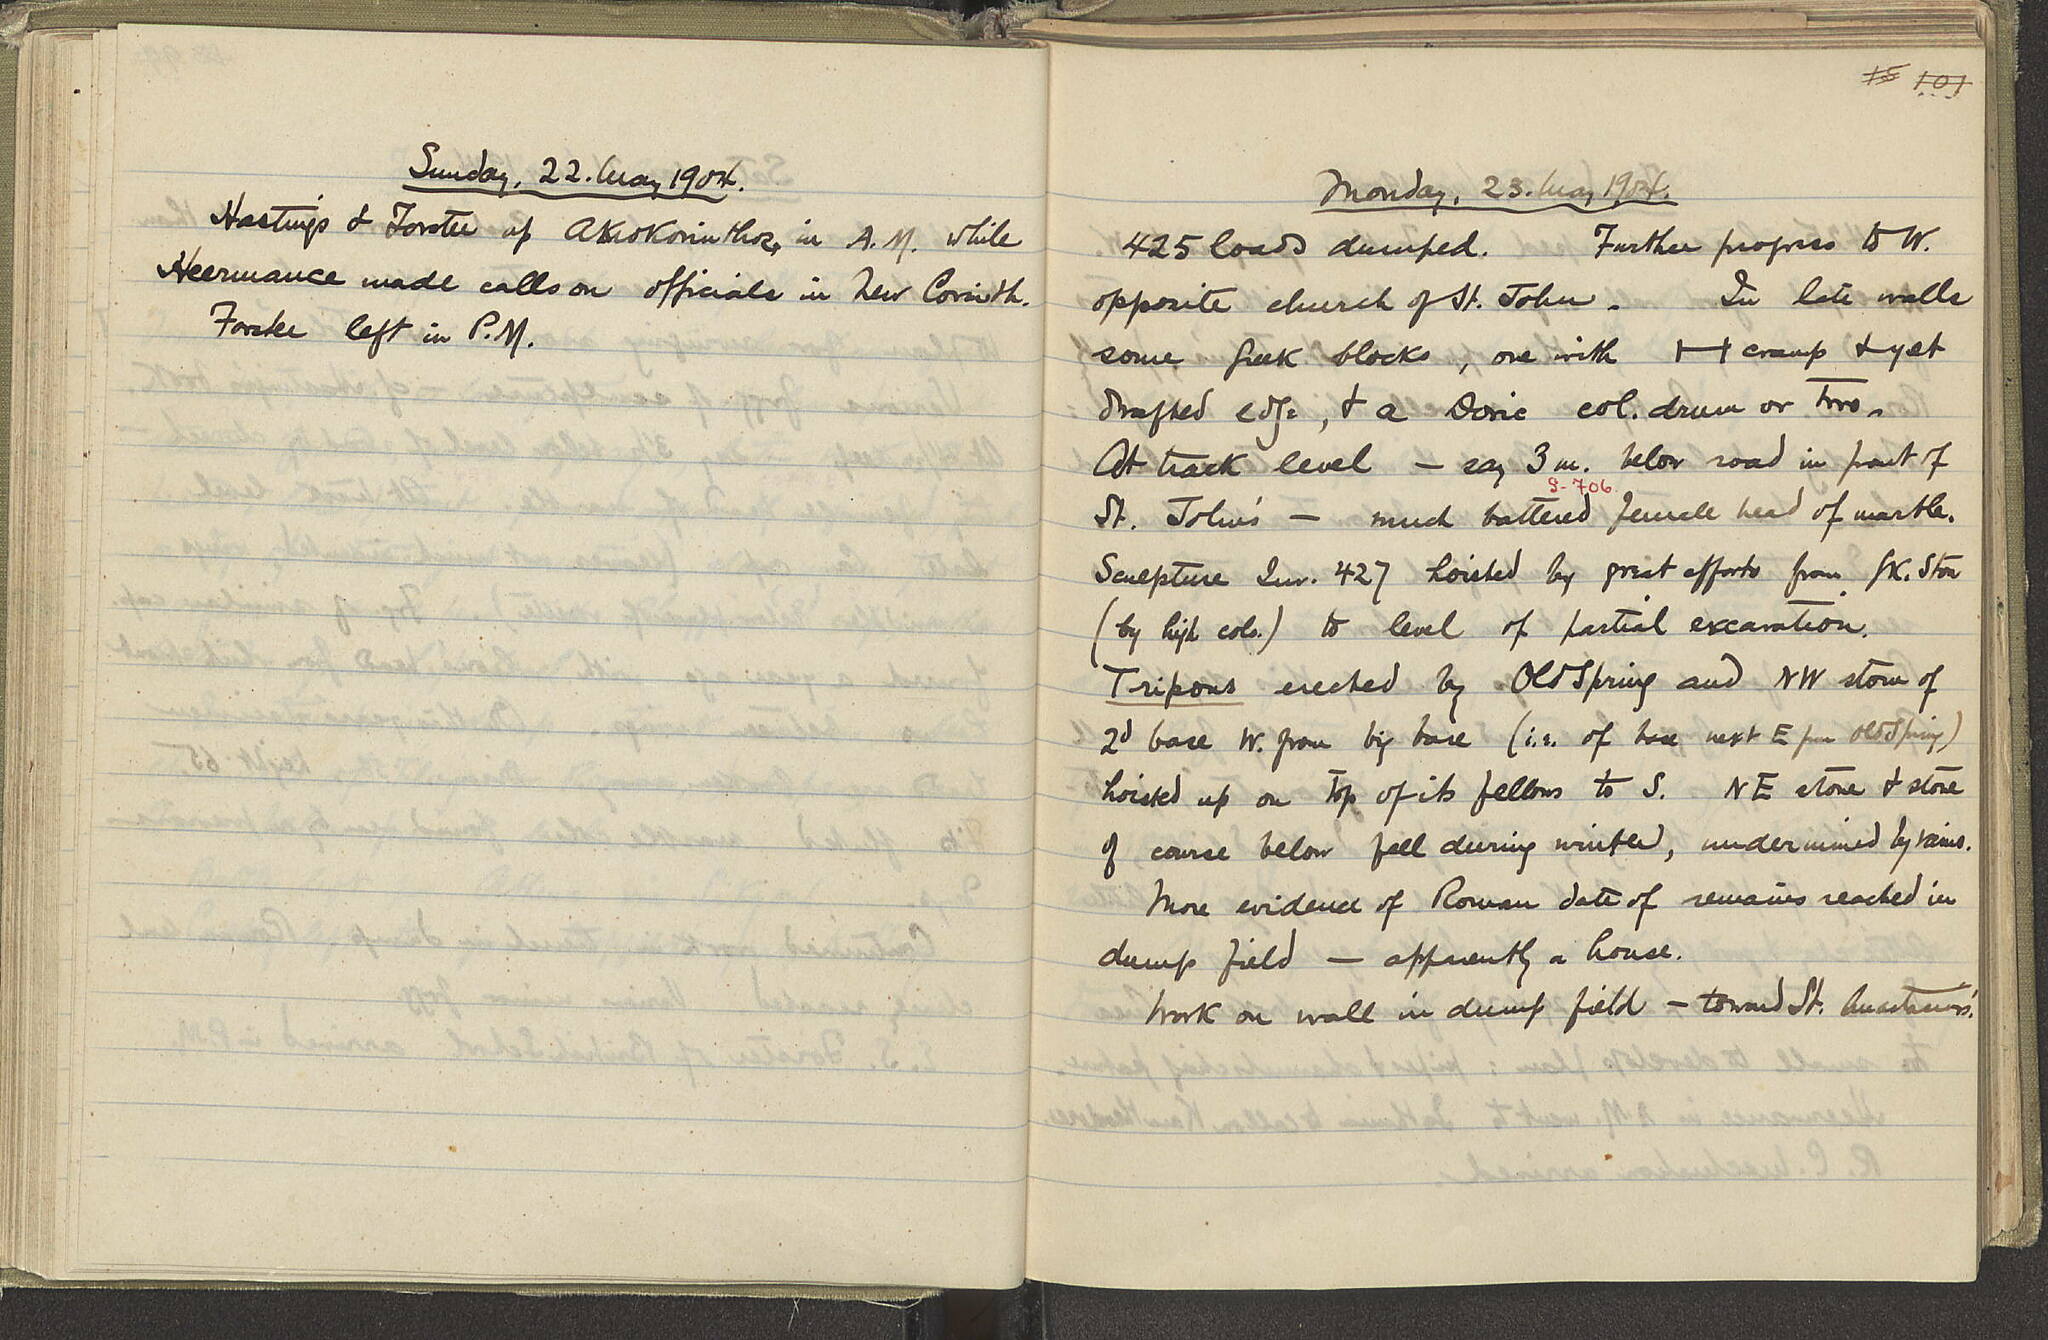 Sunday, 22. May 1904.
Hastings & Forster up Akrokorinthos, in A.M. while
Heermance made calls on officials in New Corinth.
Forster left in P.M.
15 101
Monday, 23. May 1904.
425 loads dumped. Further progress to W.
opposite church of St. John. In late walls
some Greek blocks, one with cramp & yet
drafted edge, & a Doric col. drum or two.
At track level — say 3 m. below road in front of
S-706
St. John's — much battered female head of marble.
Sculpture Inv. 427 hoisted by great efforts from Gk. Stoa
(by high cols.) to level of partial excavation.
Tripous erected by Old Spring and NW stone of
2d base W. from big base (i.e. of base next E from Old Spring)
hoisted up on top of its fellows to S. NE stone & stone
of course below fell during winter, undermined by rains.
More evidence of Roman date of remains reached in
dump field — apparently a house.
Work on wall in dump field — toward St. Anastasius'.